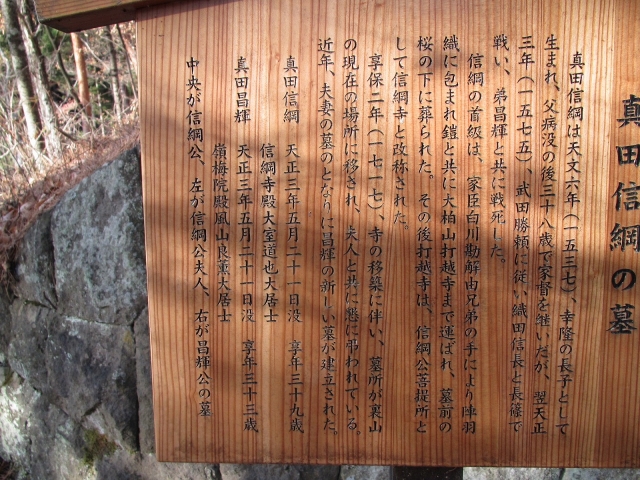 真田信綱の墓
真田信綱は天文六年（一五三七）、幸隆の長子として
生まれ、父病没の後三十八歳で家督を継いだが、翌天正
三年（一五七五）、武田勝頼に従い織田信長と長篠で
戦い、弟昌輝と共に戦死した。
信綱の首級は、家臣白川勘解由兄弟の手により陣羽
織に包まれ鎧と共に大柏山打越寺まで運ばれ、墓前の
桜の下に葬られた。その後打越寺は、信綱公菩提所と
して信綱寺と改称された。
享保二年（一七一七）、寺の移築に伴い、墓所が裏山
の現在の場所に移され、夫人と共に懇に弔われている。
近年、夫妻の墓のとなりに昌輝の新しい墓が建立された。
真田信綱 天正三年五月二十一日没 享年三十九歳
信綱寺殿大室道也大居士
真田昌輝 天正三年五月二十一日没 享年三十三歳
嶺梅院殿風山良薫大居士
中央が信綱公、左が信綱公夫人、右が昌輝公の墓